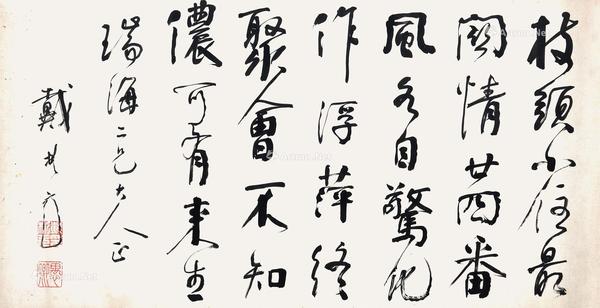 枝頭小住最
關情廿四番
風各自驚化
作浮萍終
聚會不知
儂可有來生
瑞海二兄大人正
戴